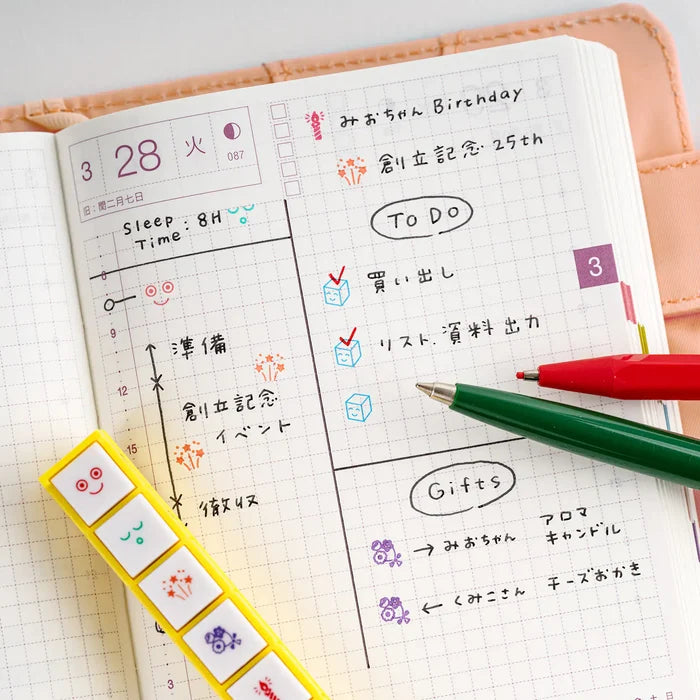 3 28 火
087
旧:閏二月七日
みおちゃん Birthday
創立記念 25th
Sleep
Time : 8H
To Do
買い出し
リスト.資料出力
3
8
9
準備
12
創立記念
イベント
15
撤収
Gifts
→ みおちゃん アロマ
キャンドル
← くみこさん チーズおかき
3